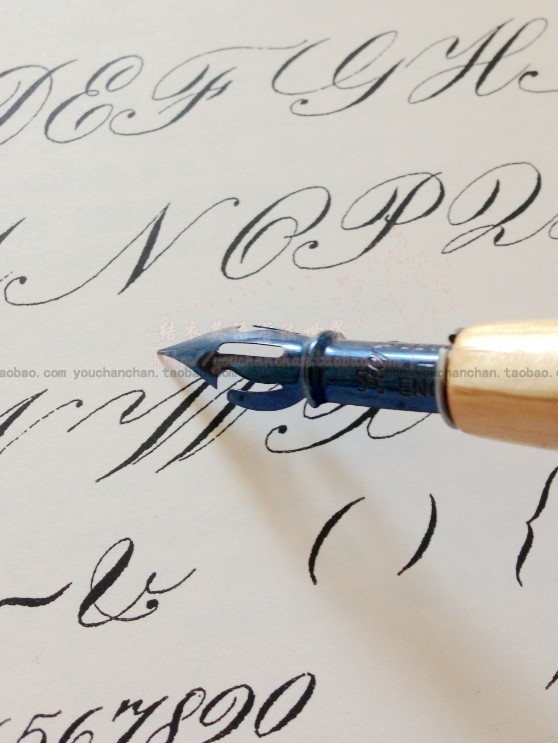 D E F G H
N O P Q
taobao.com youchanchan.taobao.com youchanchan.taobao.
ENG
W X
~ & ( ) {
567890